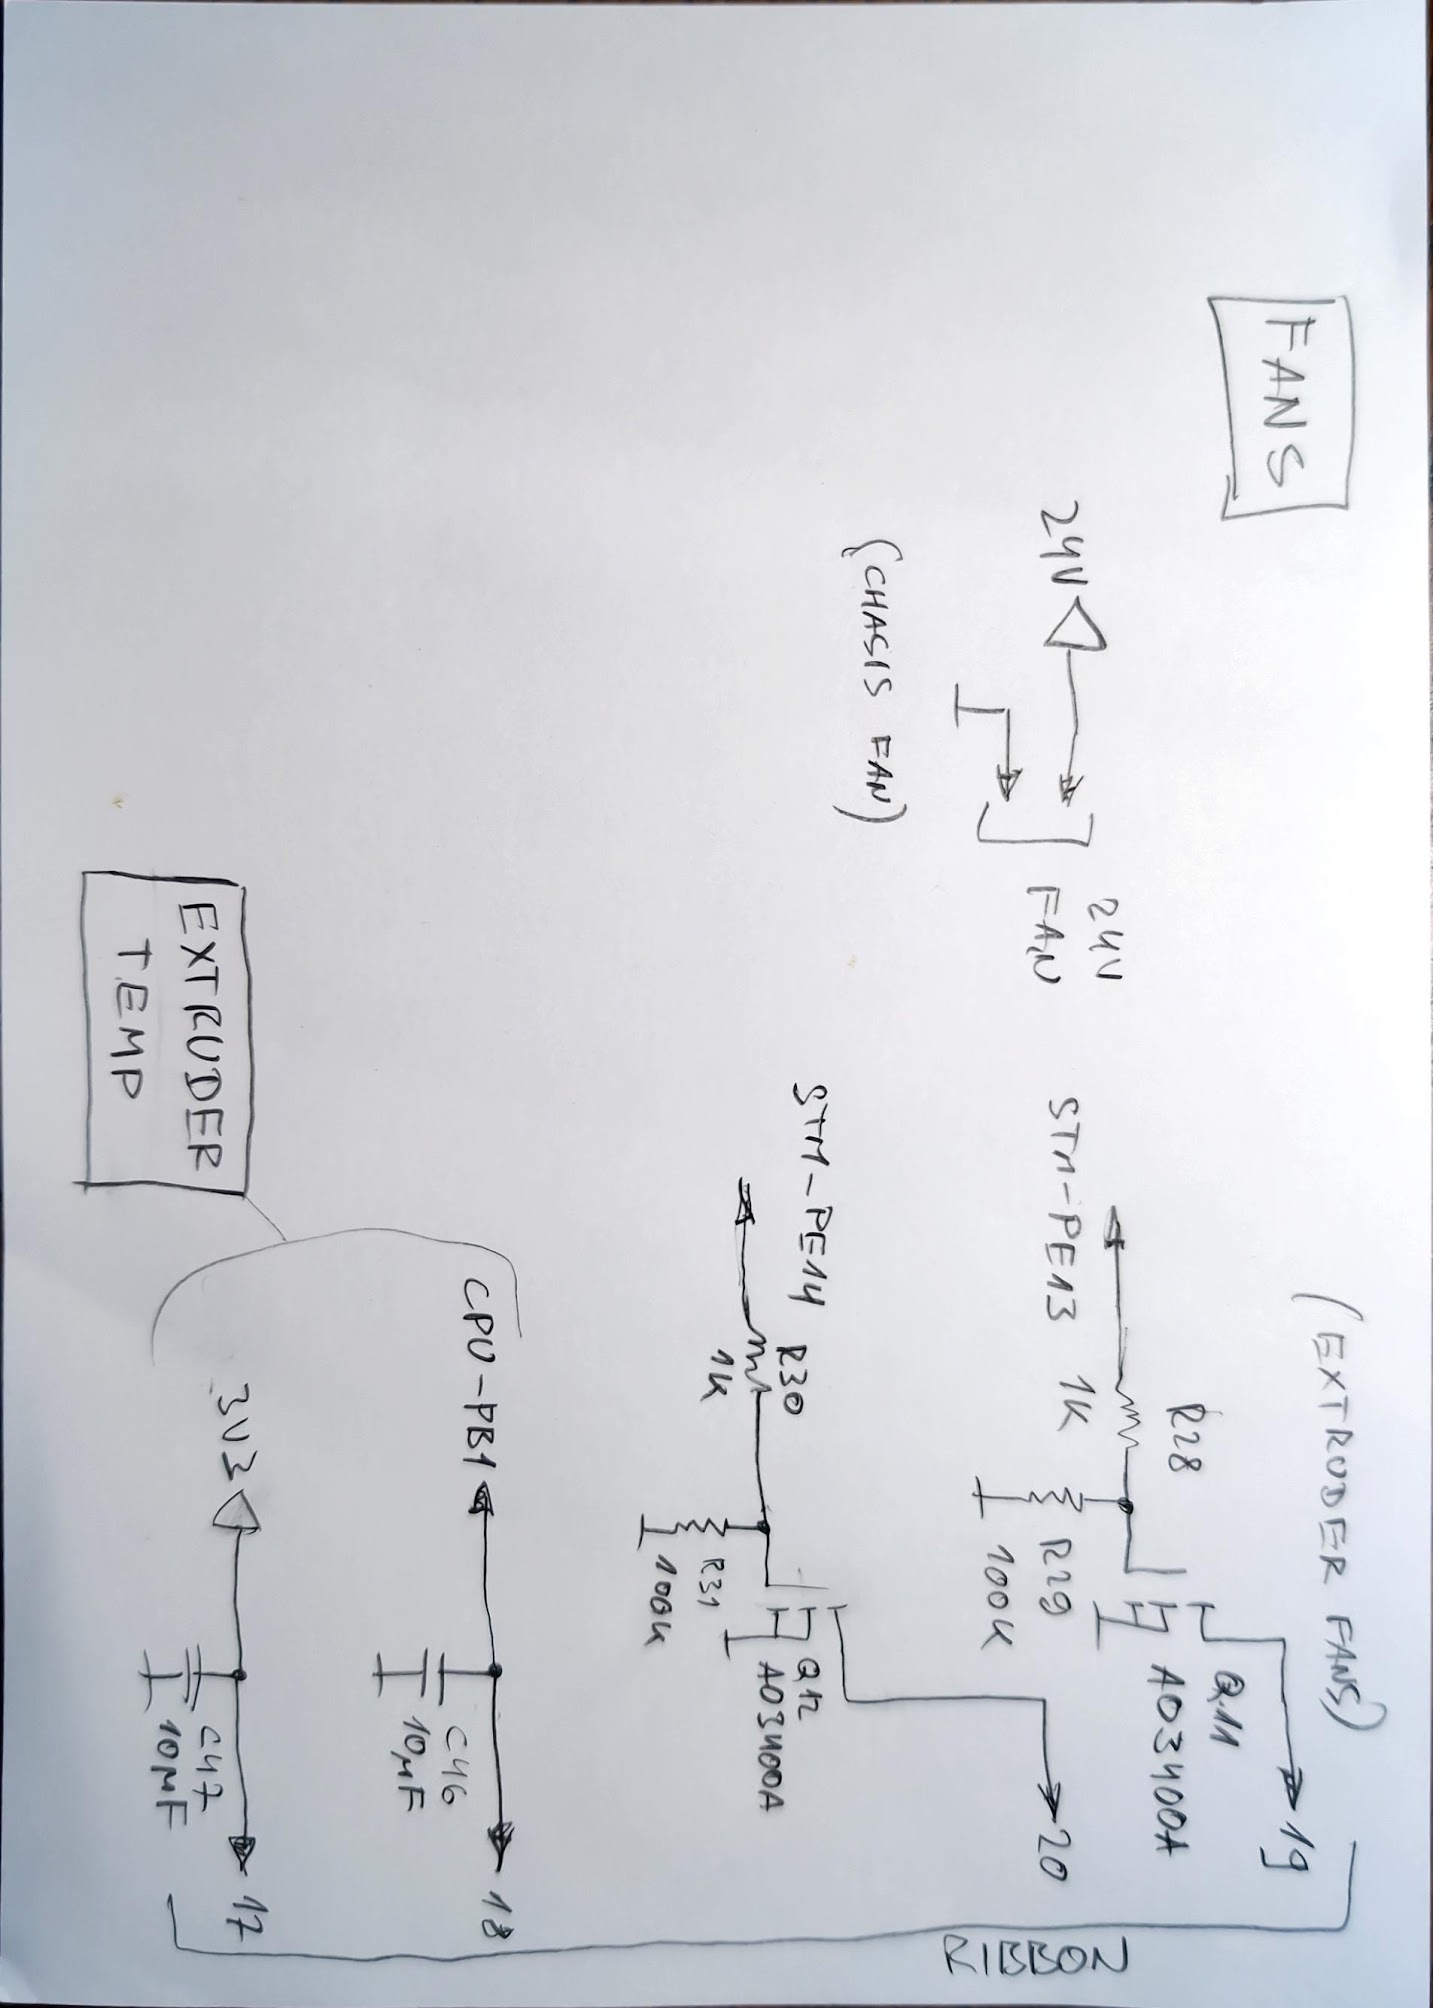 FANS
24V
24V
FAN
(CHASIS FAN)
(EXTRUDER FANS)
STM-PE13
R28
1K
R29
100K
Q11
AO3400A
19
STM-PE14
R30
1K
R31
100K
Q12
AO3400A
20
EXTRUDER
TEMP
CPU-PB1
C46
10µF
18
3V3
C47
10µF
17
RIBBON